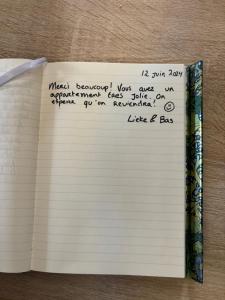 12 juin 2024
Merci beaucoup! Vous avez un
appartement très jolie. On
espère qu'on reviendra! ☺
Lieke & Bas